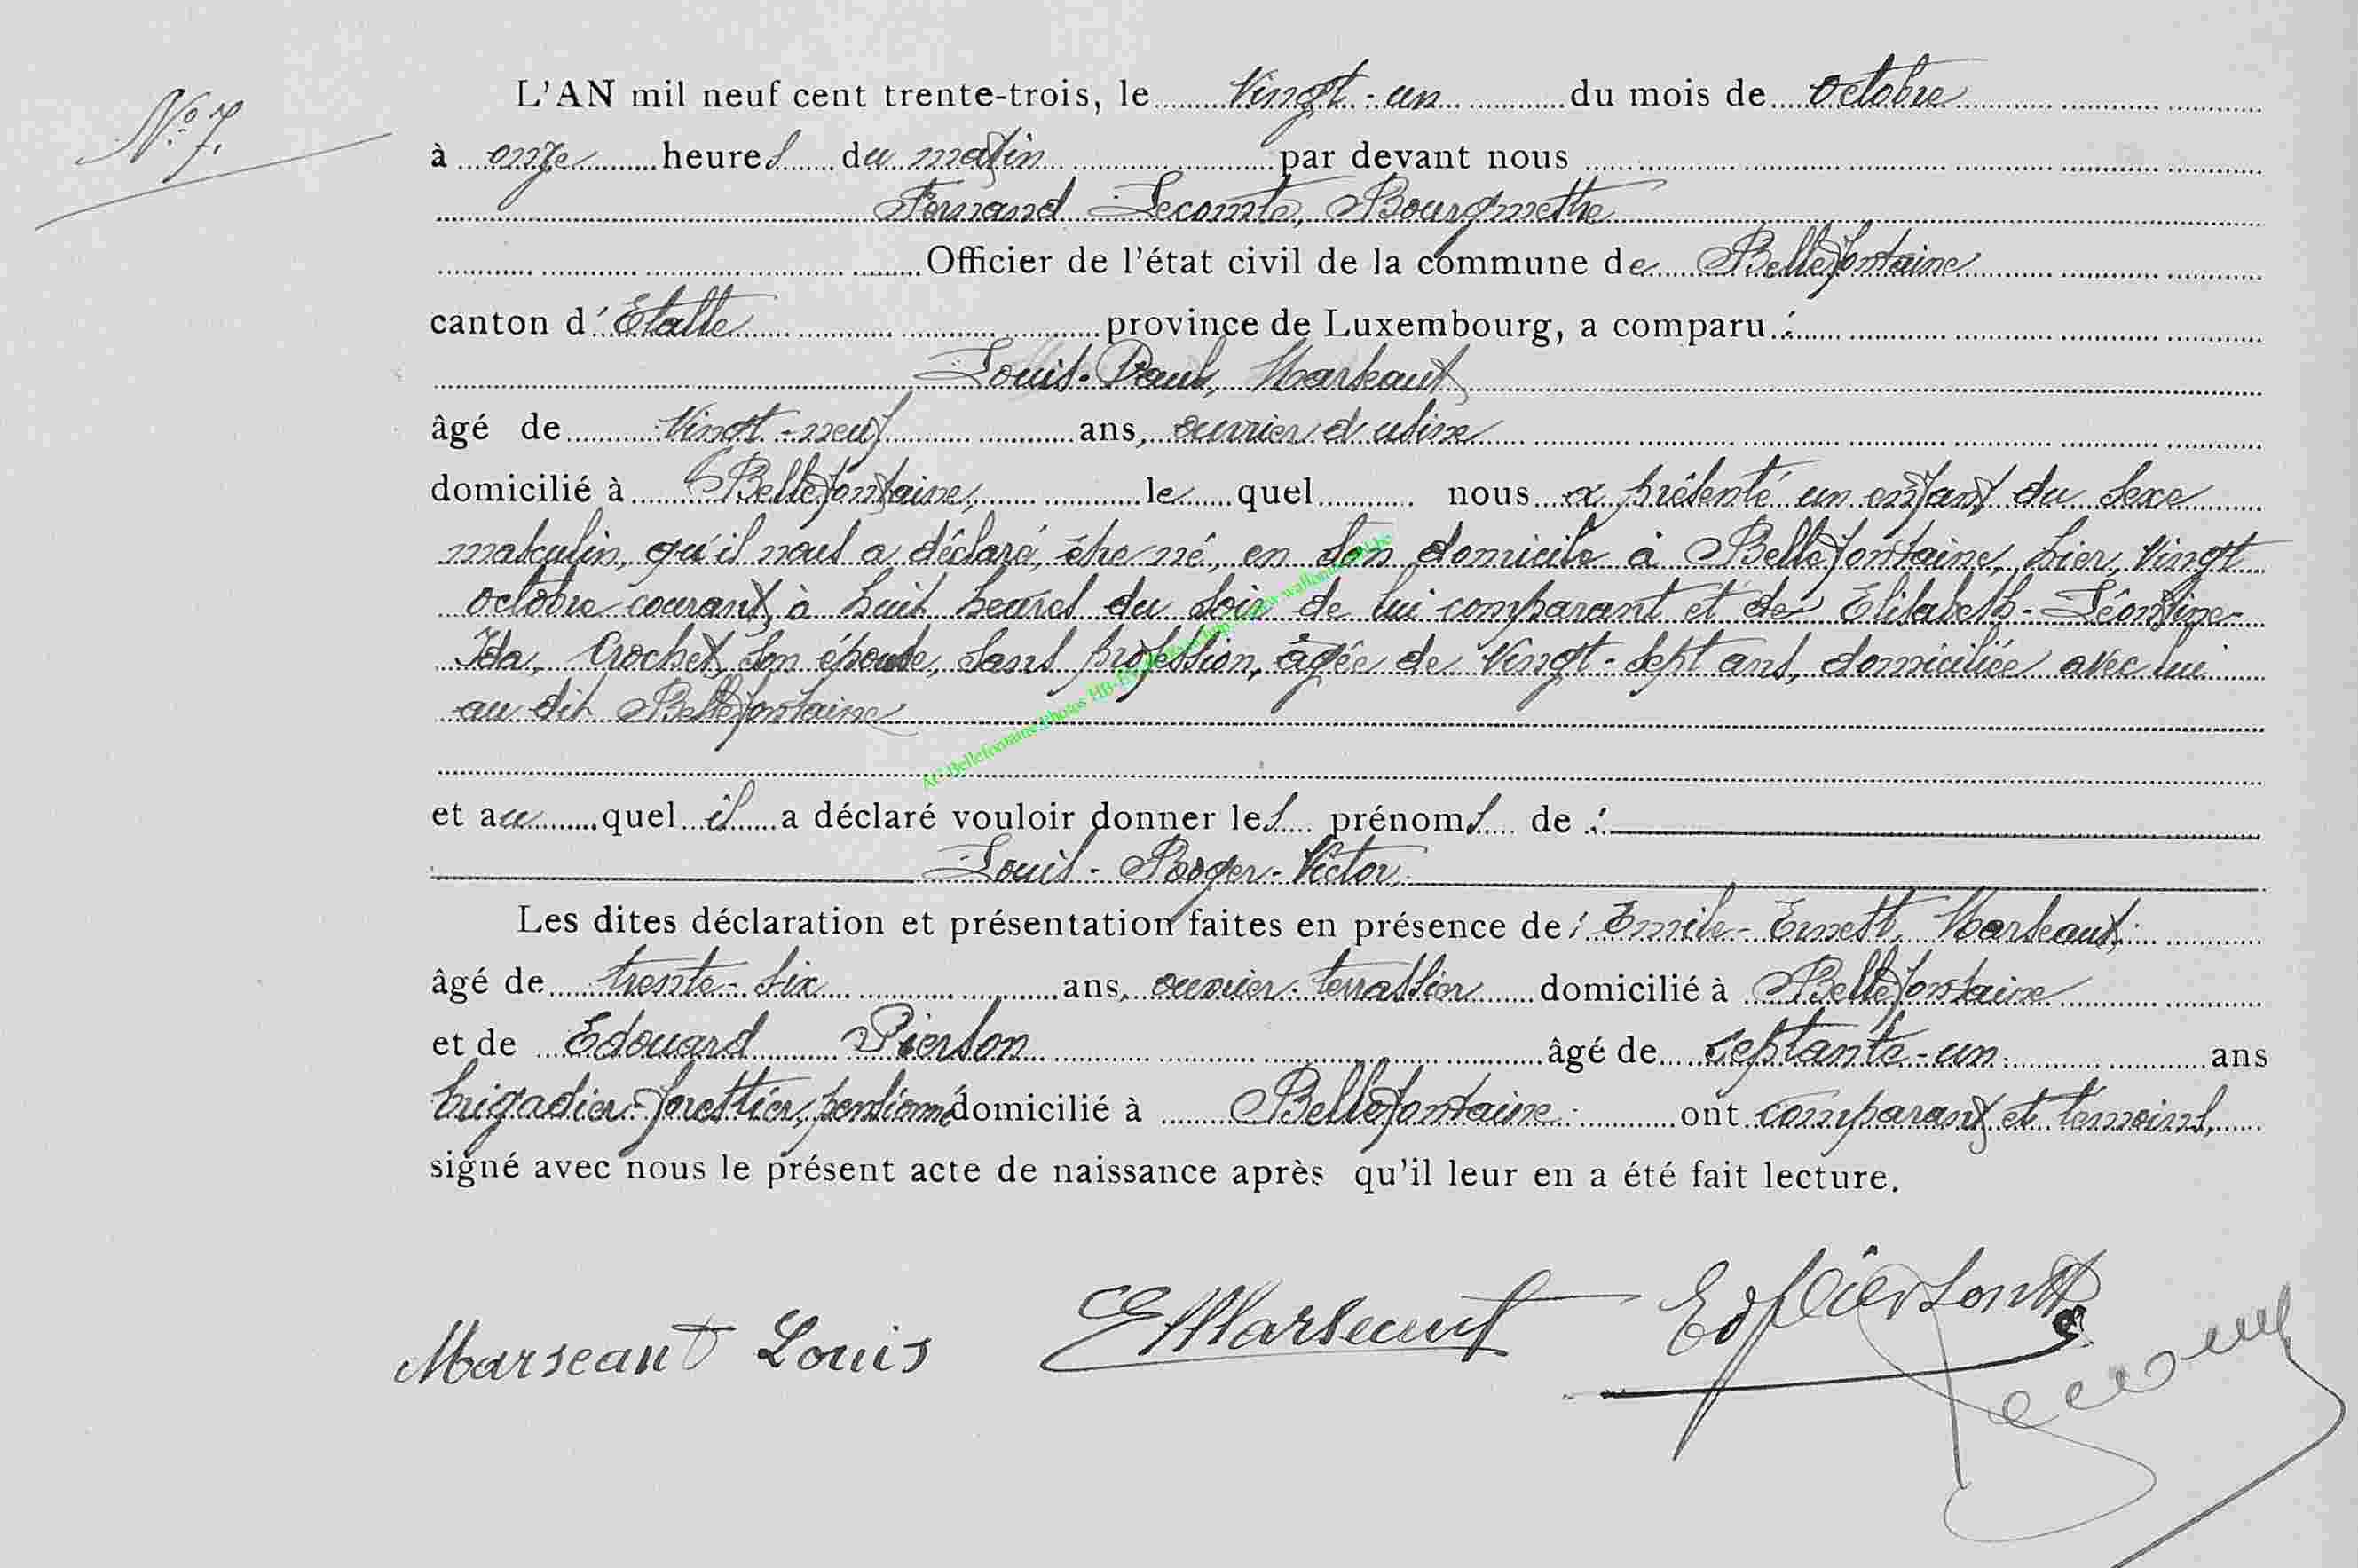 N° 7.
L'AN mil neuf cent trente-trois, le vingt-un du mois de octobre
à onze heures du matin par devant nous
Fernand Lecomte, Bourgmestre
Officier de l'état civil de la commune de Bellefontaine
canton d'Etalle province de Luxembourg, a comparu :
Louis-Paul, Marseaut
âgé de vingt-neuf ans, ouvrier d'usine
domicilié à Bellefontaine, le quel nous a présenté un enfant du sexe
masculin, qu'il nous a déclaré, être né, en son domicile à Bellefontaine, hier, vingt
octobre courant, à huit heures du soir de lui comparant et de Elisabeth-Léontine-
Ida, Crochet, son épouse, sans profession, âgée de vingt-sept ans, domiciliée avec lui
au dit Bellefontaine
et au quel il a déclaré vouloir donner les prénoms de :
Louis-Roger-Victor.
Les dites déclaration et présentation faites en présence de : Emile-Ernest, Marseaut,
âgé de trente-six ans, ouvrier-terrassier domicilié à Bellefontaine
et de Edouard Pierson âgé de septante-un ans
brigadier-forestier, pensionné domicilié à Bellefontaine ont comparant et témoins,
signé avec nous le présent acte de naissance après qu'il leur en a été fait lecture.
Marseaut Louis E Marseaut Ed Pierson
Lecomte
AC Bellefontaine Photos HB-